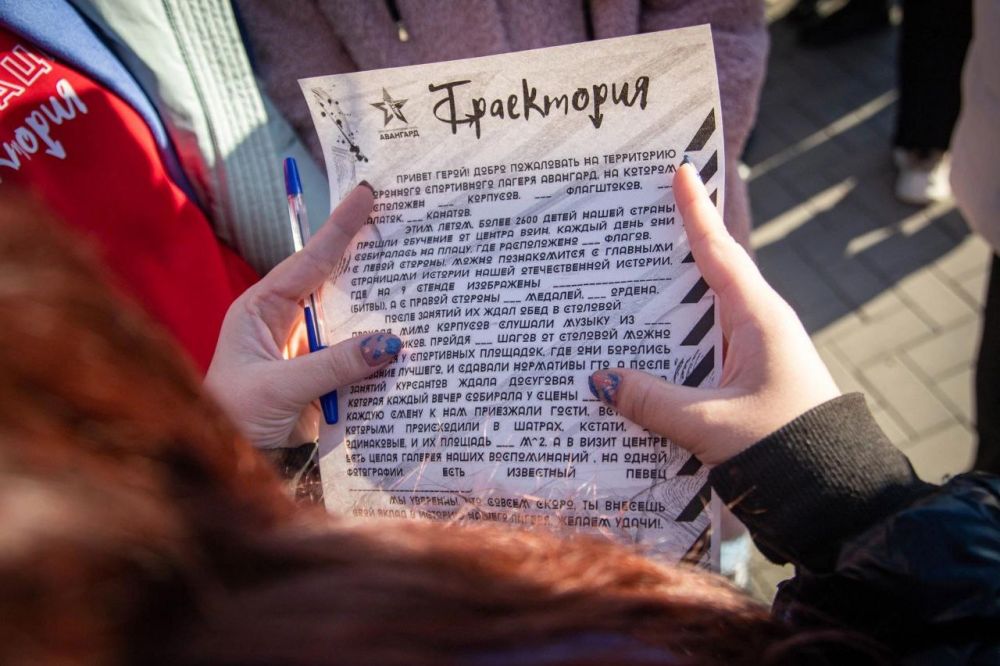 АЦ
Траектория
АВАНГАРД
ПРИВЕТ ГЕРОЙ! ДОБРО ПОЖАЛОВАТЬ НА ТЕРРИТОРИЮ
СПОРТИВНОГО ЛАГЕРЯ АВАНГАРД, НА КОТОРОМ
___ КОРПУСОВ, ___ ФЛАГШТОКОВ,
___ КАНАТОВ.
ЭТИМ ЛЕТОМ, БОЛЕЕ 2600 ДЕТЕЙ НАШЕЙ СТРАНЫ
ПРОШЛИ ОБУЧЕНИЕ ОТ ЦЕНТРА ВОИН. КАЖДЫЙ ДЕНЬ ОНИ
СОБИРАЛИСЬ НА ПЛАЦУ, ГДЕ РАСПОЛОЖЕНО ___ ФЛАГОВ.
С ЛЕВОЙ СТОРОНЫ, МОЖНО ПОЗНАКОМИТСЯ С ГЛАВНЫМИ
СТРАНИЦАМИ ИСТОРИИ НАШЕЙ ОТЕЧЕСТВЕННОЙ ИСТОРИИ,
ГДЕ НА 9 СТЕНДЕ ИЗОБРАЖЕНЫ _______________
(БИТВЫ), А С ПРАВОЙ СТОРОНЫ ___ МЕДАЛЕЙ, ___ ОРДЕНА.
ПОСЛЕ ЗАНЯТИЙ ИХ ЖДАЛ ОБЕД В СТОЛОВОЙ
МИМО КОРПУСОВ СЛУШАЛИ МУЗЫКУ ИЗ ____
ПРОЙДЯ ___ ШАГОВ ОТ СТОЛОВОЙ МОЖНО
У СПОРТИВНЫХ ПЛОЩАДОК, ГДЕ ОНИ БОРОЛИСЬ
ЛУЧШЕГО, И СДАВАЛИ НОРМАТИВЫ ГТО, А ПОСЛЕ
ЗАНЯТИЙ КУРСАНТОВ ЖДАЛА ДОСУГОВАЯ
КОТОРАЯ КАЖДЫЙ ВЕЧЕР СОБИРАЛА У СЦЕНЫ
КАЖДУЮ СМЕНУ К НАМ ПРИЕЗЖАЛИ ГОСТИ,
КОТОРЫМИ ПРОИСХОДИЛИ В ШАТРАХ, КСТАТИ,
ОДИНАКОВЫЕ, И ИХ ПЛОЩАДЬ ___ М^2, А В ВИЗИТ ЦЕНТРЕ
ЕСТЬ ЦЕЛАЯ ГАЛЕРЕЯ НАШИХ ВОСПОМИНАНИЙ , НА ОДНОЙ
ФОТОГРАФИИ ЕСТЬ ИЗВЕСТНЫЙ ПЕВЕЦ
_______________
МЫ УВЕРЕННЫ, ЧТО СОВСЕМ СКОРО, ТЫ ВНЕСЕШЬ
СВОЙ ВКЛАД В ИСТОРИЮ НАШЕГО ЛАГЕРЯ, ЖЕЛАЕМ УДАЧИ!